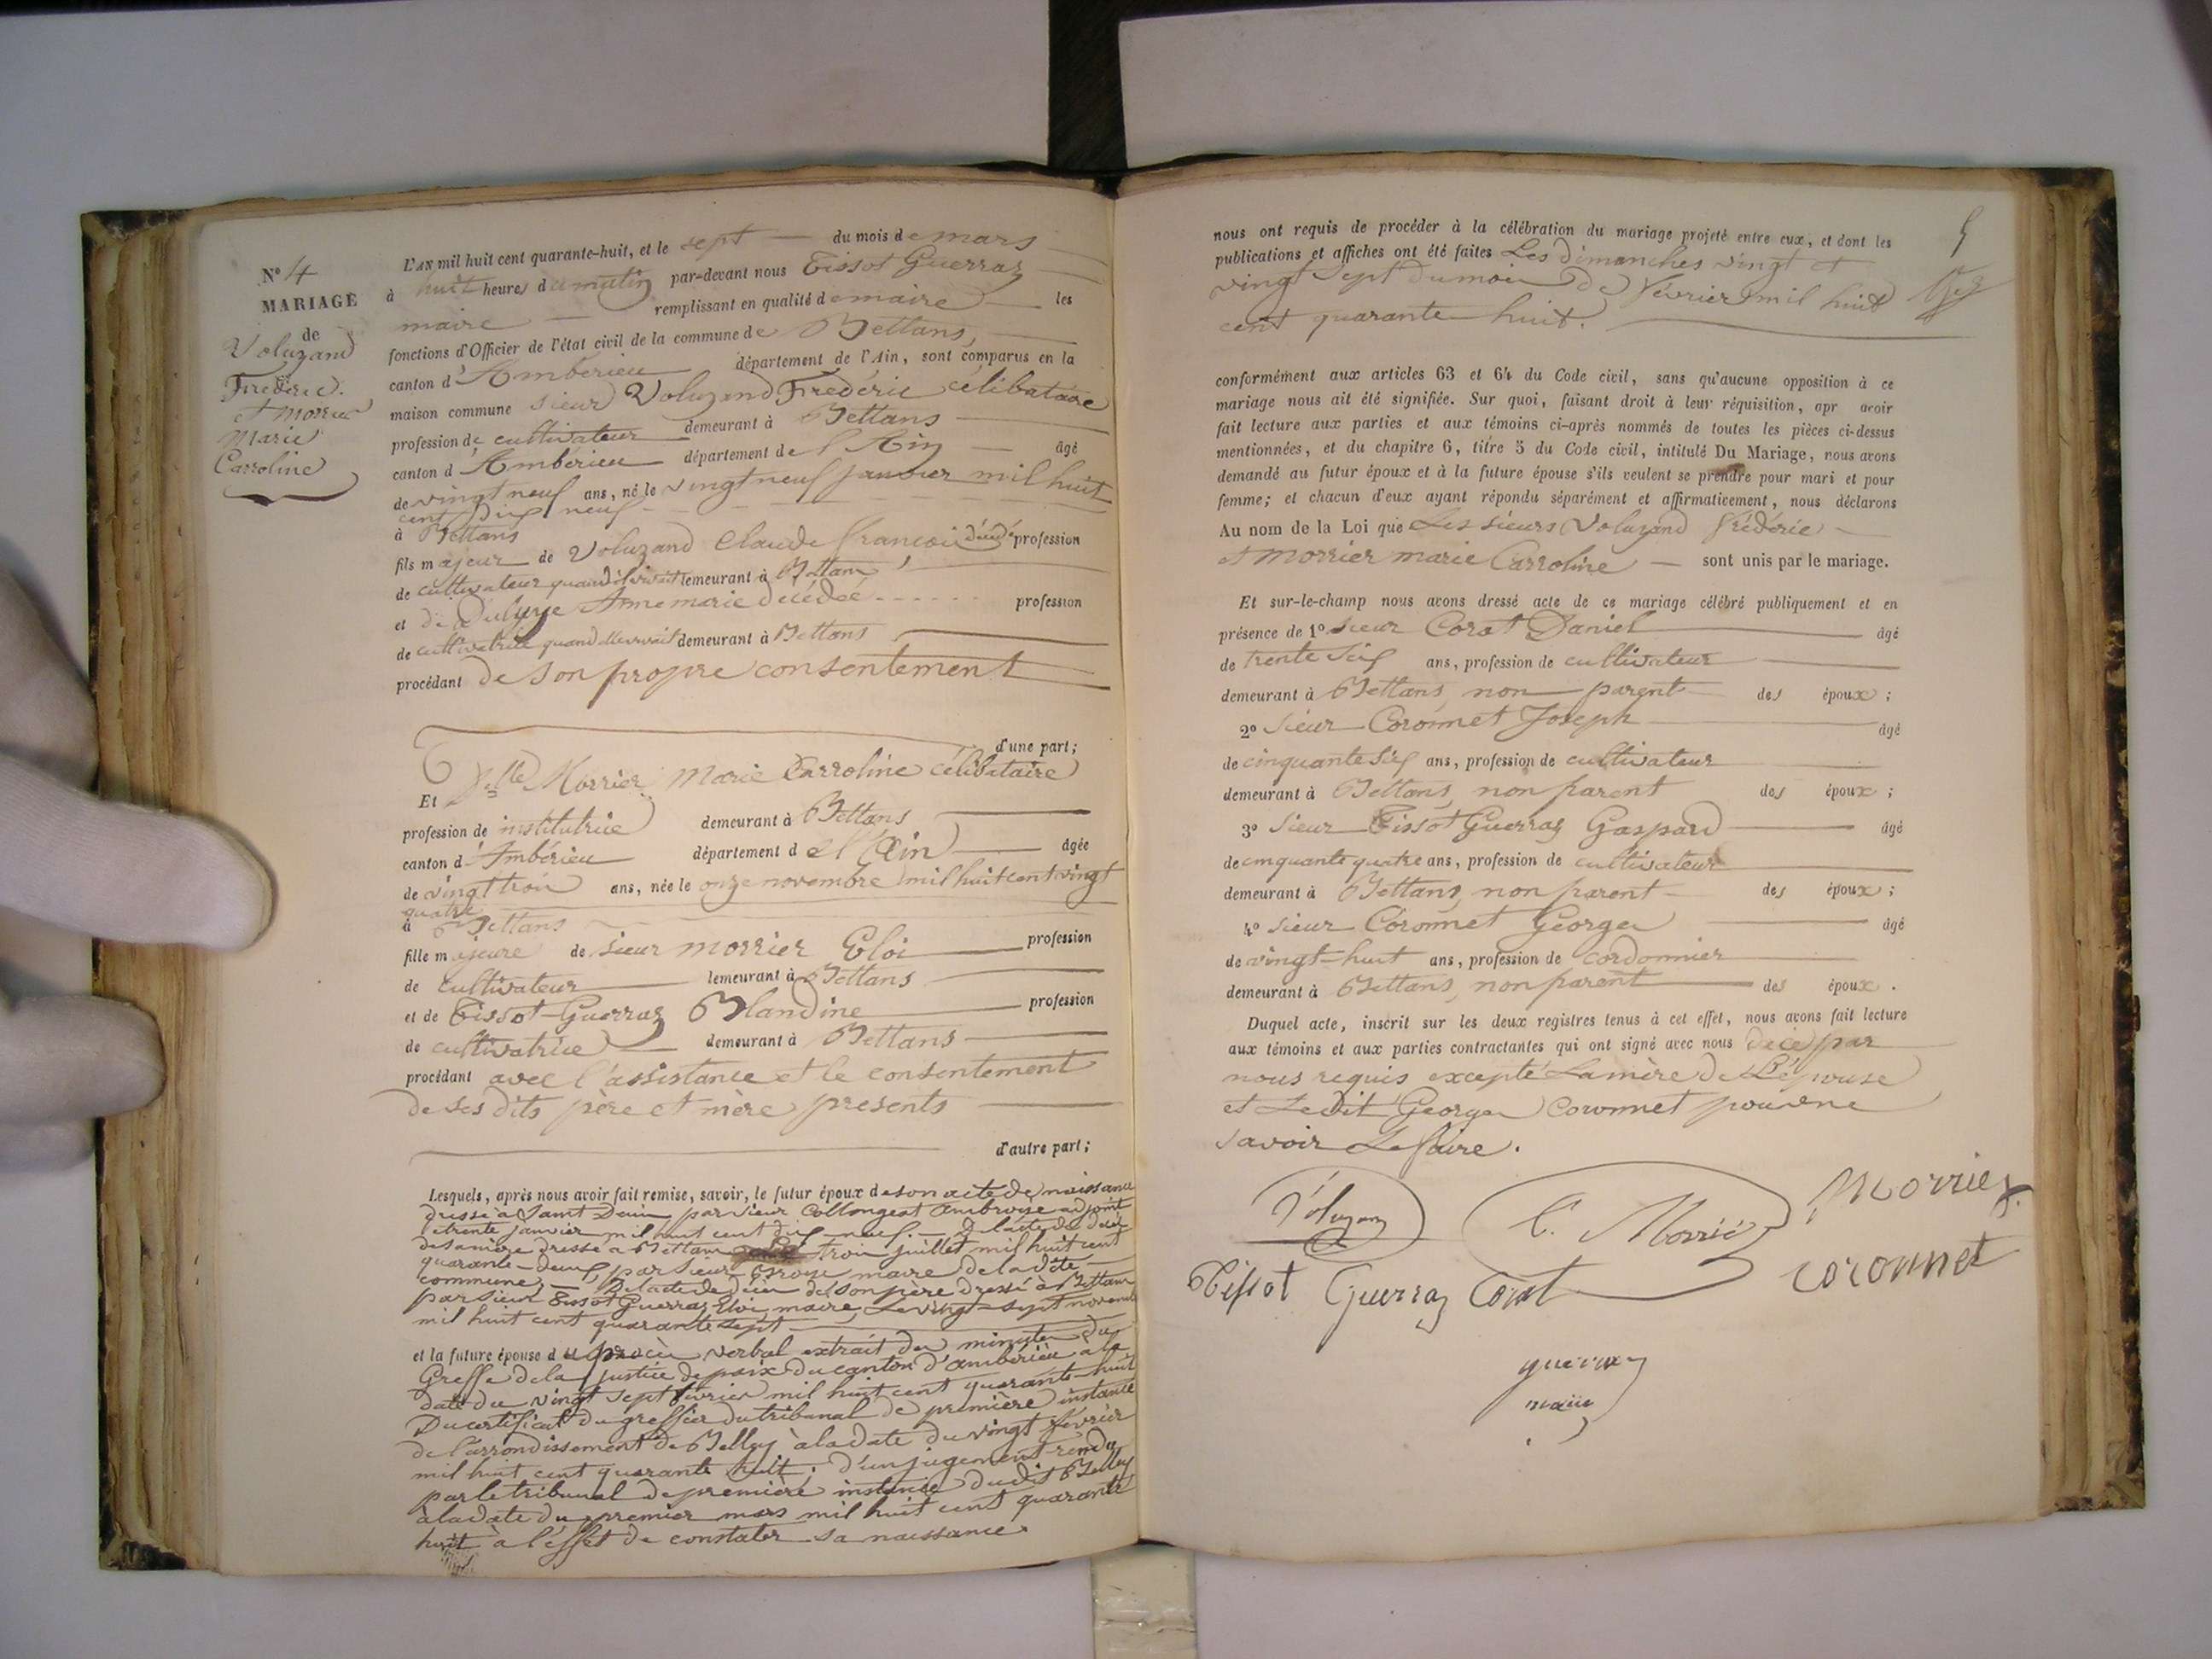 N° 4
MARIAGE
de
Voluzand
Frédéric.
et Morrier
Marie
Carroline
L'AN mil huit cent quarante-huit, et le sept du mois de mars
à huit heures du matin par-devant nous Tissot Guerraz
maire remplissant en qualité de maire les
fonctions d'Officier de l'état civil de la commune de Bettans,
canton d'Ambérieu département de l'Ain, sont comparus en la
maison commune sieur Voluzand Frédéric célibataire
profession de cultivateur demeurant à Bettans
canton d'Ambérieu département de l'Ain âgé
de vingt neuf ans, né le vingt neuf janvier mil huit
cent dix neuf
à Bettans
fils majeur de Voluzand Claude françois décédé profession
de cultivateur quand il vivait demeurant à Bettans
et de Anne marie décédée profession
de cultivatrice quand elle vivait demeurant à Bettans
procédant de son propre consentement
d'une part;
Et Delle Morrier Marie Carroline célibataire
profession de institutrice demeurant à Bettans
canton d'Ambérieu département de l'Ain âgée
de vingt trois ans, née le onze novembre mil huit cent vingt
quatre
à Bettans
fille majeure de sieur morrier Eloi profession
de cultivateur demeurant à Bettans
et de Tissot-Guerraz Blandine profession
de cultivatrice demeurant à Bettans
procédant avec l'assistance et le consentement
de ses dits père et mère présents
d'autre part;
Lesquels, après nous avoir fait remise, savoir, le futur époux de son acte de naissance
dressé à Saint Denis par sieur Collongeat Ambroise adjoint
le trente janvier mil huit cent dix neuf. De l'acte de décès
de sa mère dressé à Bettans trois juillet mil huit cent
quarante-deux, par sieur maire de la dite
commune, De l'acte de décès de son père dressé à Bettans
par sieur Tissot Guerraz Eloi, maire, Le vingt-sept novembre
mil huit cent quarante sept
et la future épouse du procès verbal extrait des minutes du
Greffe de la justice de paix du canton d'ambérieu à la
date du vingt sept février mil huit cent quarante-huit
Du certificat du greffier du tribunal de première instance
de l'arrondissement de Belley à la date du vingt février
mil huit cent quarante huit; d'un jugement rendu
par le tribunal de première instance dudit Belley
à la date du premier mars mil huit cent quarante
huit à l'effet de constater sa naissance.
5
nous ont requis de procéder à la célébration du mariage projeté entre eux, et dont les
publications et affiches ont été faites Les dimanches vingt et
vingt sept du mois de février mil huit
cent quarante huit.
conformément aux articles 63 et 64 du Code civil, sans qu'aucune opposition à ce
mariage nous ait été signifiée. Sur quoi, faisant droit à leur réquisition, apr avoir
fait lecture aux parties et aux témoins ci-après nommés de toutes les pièces ci-dessus
mentionnées, et du chapitre 6, titre 5 du Code civil, intitulé Du Mariage, nous avons
demandé au futur époux et à la future épouse s'ils veulent se prendre pour mari et pour
femme; et chacun d'eux ayant répondu séparément et affirmativement, nous déclarons
Au nom de la Loi que Les sieurs Voluzand frédéric
et morrier marie Carroline sont unis par le mariage.
Et sur-le-champ nous avons dressé acte de ce mariage célébré publiquement et en
présence de 1° sieur Corat Daniel âgé
de trente six ans, profession de cultivateur
demeurant à Bettans, non parent des époux;
2° sieur Coronnet Joseph âgé
de cinquante six ans, profession de cultivateur
demeurant à Bettans, non parent des époux;
3° sieur Tissot Guerraz Gaspard âgé
de cinquante quatre ans, profession de cultivateur
demeurant à Bettans, non parent des époux;
4° sieur Coronnet George âgé
de vingt-huit ans, profession de cordonnier
demeurant à Bettans, non parent des époux.
Duquel acte, inscrit sur les deux registres tenus à cet effet, nous avons fait lecture
aux témoins et aux parties contractantes qui ont signé avec nous de ce par
nous requis excepté La mère de L'épouse
et Ledit George Coronnet pour ne
savoir Le faire.
C. Morrier
Morrier
Tissot Guerraz Corat
coronnet
guerraz
maire